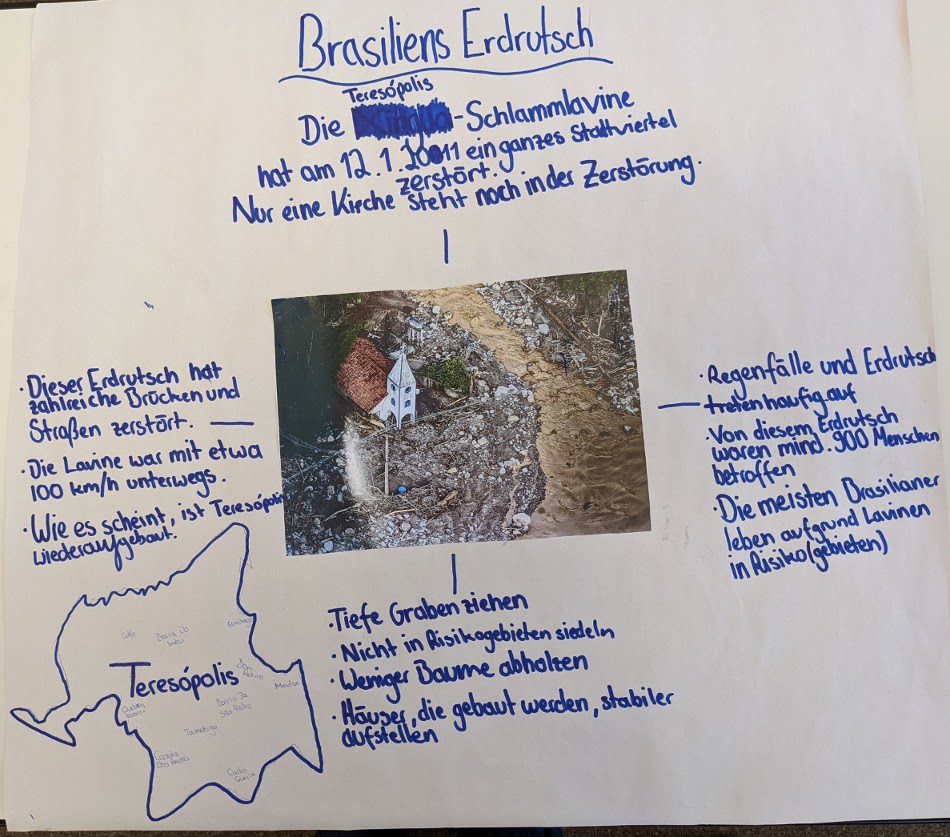 Brasiliens Erdrutsch
Teresópolis
Die -Schlammlavine
hat am 12.1.2011 ein ganzes Stadtviertel
zerstört.
Nur eine Kirche steht noch in der Zerstörung.
· Dieser Erdrutsch hat
zahlreiche Brücken und
Straßen zerstört.
· Die Lavine war mit etwa
100 km/h unterwegs.
· Wie es scheint, ist Teresópolis
wiederaufgebaut.
· Regenfälle und Erdrutsch
treten haufig auf
· Von diesem Erdrutsch
waren mind. 900 Menschen
betroffen
· Die meisten Brasilianer
leben aufgrund Lavinen
in Risiko(gebieten)
· Tiefe Graben ziehen
· Nicht in Risikogebieten siedeln
· Weniger Bäume abholzen
· Häuser, die gebaut werden, stabiler
aufstellen
Teresópolis